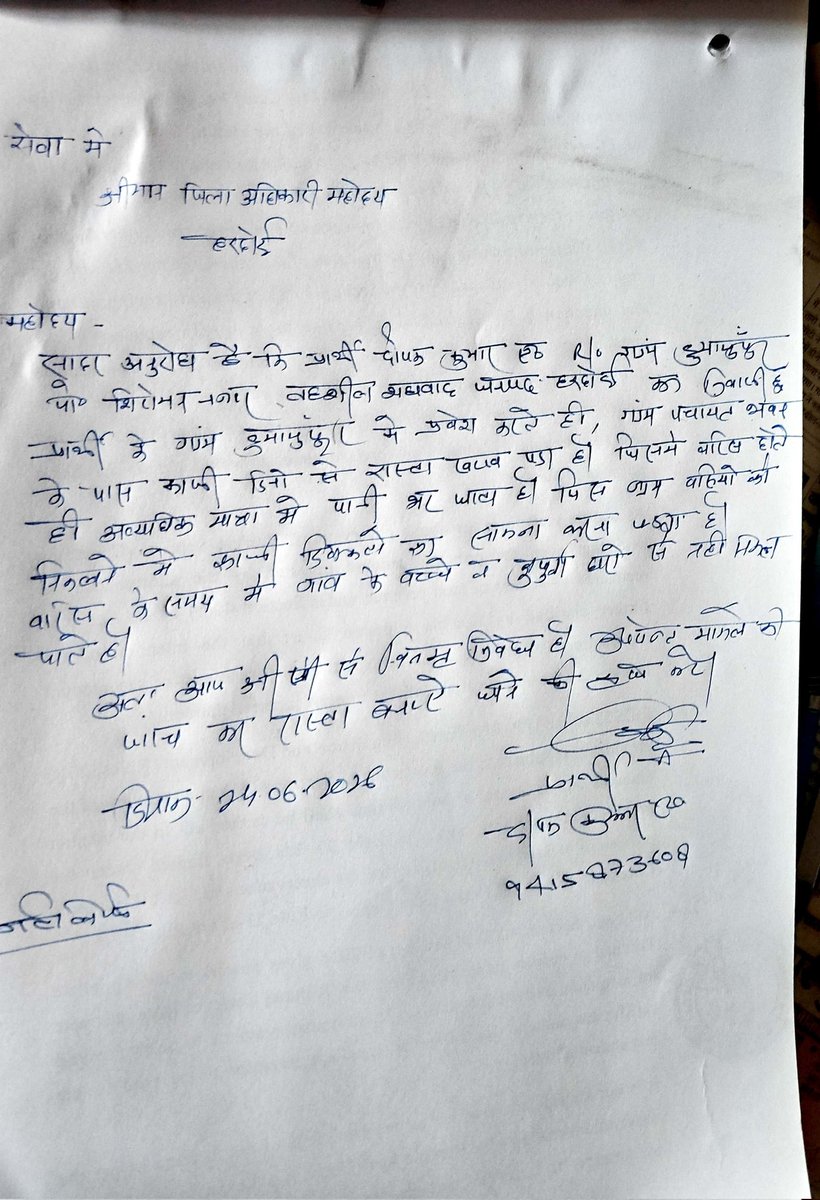 सेवा मे
श्रीमान जिला अधिकारी महोदय
हरदोई
महोदय -
सादर अनुरोध है कि प्रार्थी दीपक कुमार R/o ग्राम
पो० शिरोमन नगर तहसील शाहाबाद जनपद हरदोई का निवासी है
प्रार्थी के ग्राम मे प्रवेश करते ही, ग्राम पंचायत भवन
के पास काफी दिनो से रास्ता खराब पडा है। जिसमे बारिस होते
ही अत्यधिक मात्रा मे पानी भर जाता है। जिस ग्राम वासियो को
निकलने मे काफी दिक्कतो का सामना करना पडता है।
बारिस के समय मे गांव के बच्चे व बुजुर्ग घरो से नही निकल
पाते है।
अतः आप श्री जी से विनम्र निवेदन है। उपरोक्त मामले की
जांच कर रास्ता बनाए जाने की कृपा करे।
दिनांक- 24.06.2026
प्रार्थी
दीपक कुमार
9415873608